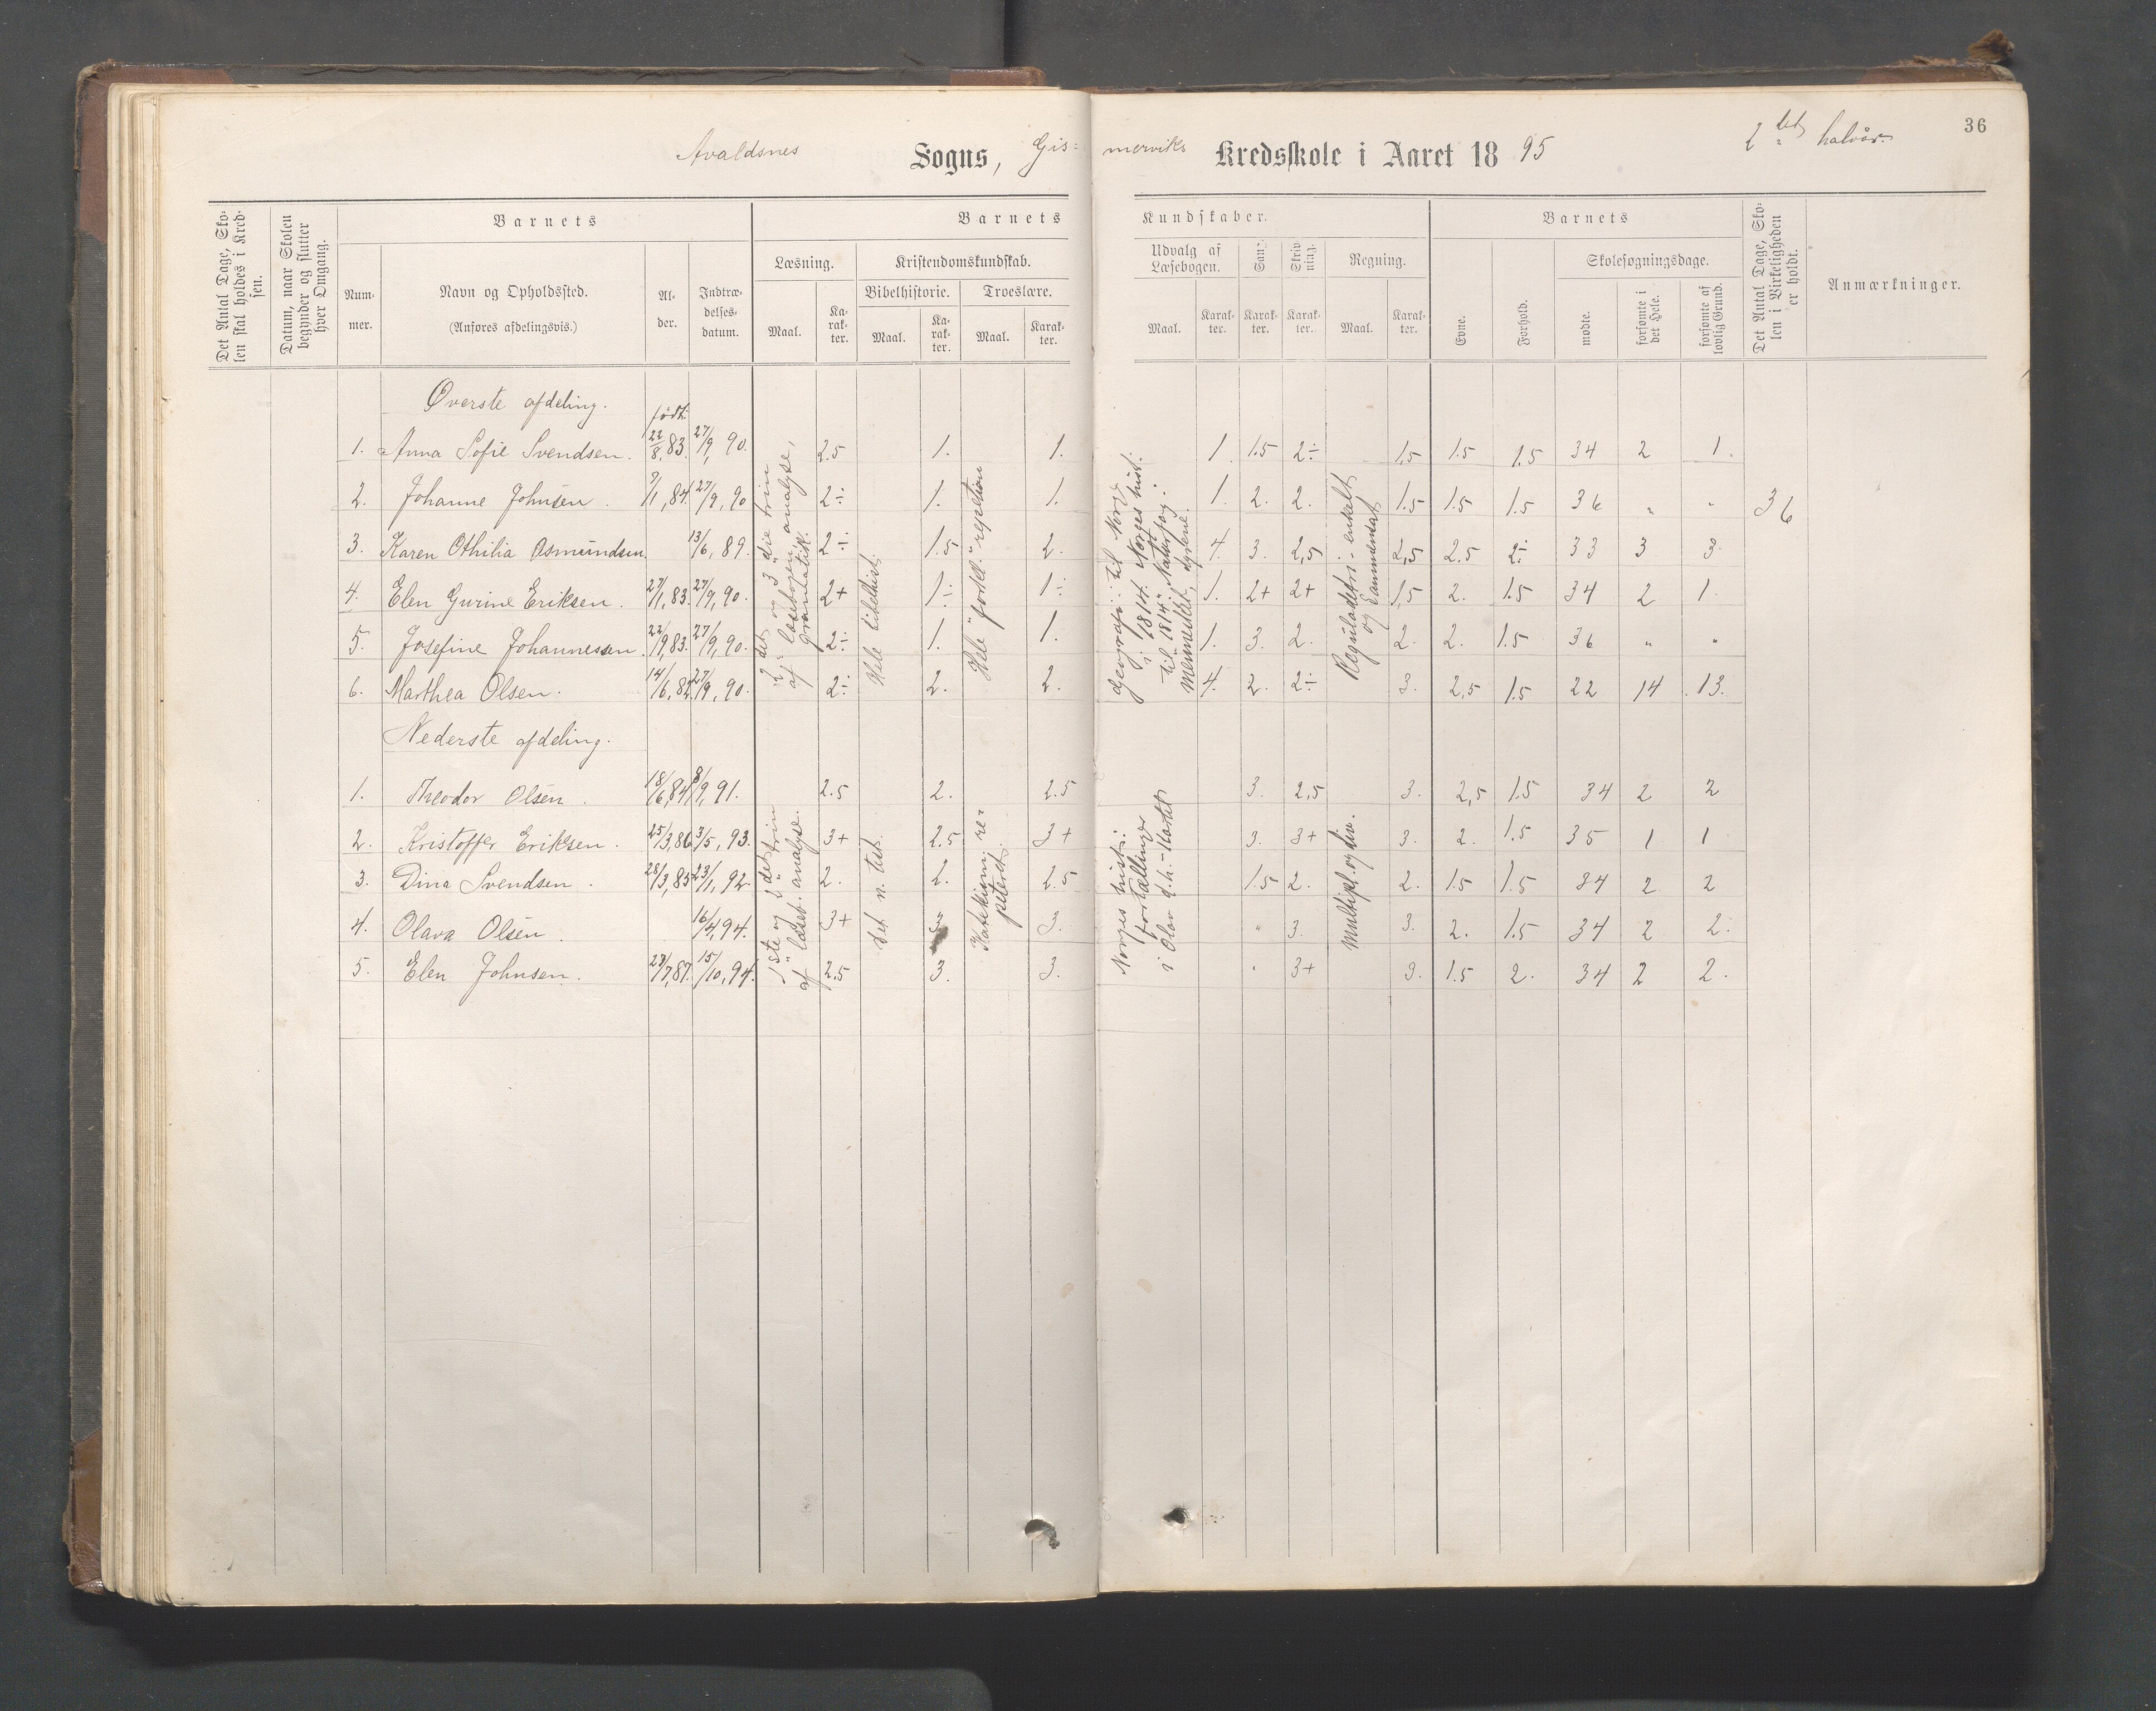 36
Avaldsnes Sogns, Gis= merviks Kredsskole i Aaret 18 95 2det halvår
Det Antal Dage, Skolen skal holdes i Kredsen.
Datum, naar Skolen begynder og slutter hver Omgang.
Barnets
Nummer.
Navn og Opholdssted.
(Anføres afdelingsvis.)
Alder.
Indtrædelsesdatum.
Barnets Kundskaber.
Læsning.
Maal. Karakter.
Kristendomskundskab.
Bibelhistorie.
Maal. Karakter.
Troeslære.
Maal. Karakter.
Udvalg af Læsebogen.
Maal. Karakter.
Sang.
Karakter.
Skrivning.
Karakter.
Regning.
Maal. Karakter.
Barnets
Evne.
Forhold.
Skolesøgningsdage.
mødte.
forsømte i det Hele.
forsømte af lovlig Grund.
Det Antal Dage, Skolen i Virkeligheden er holdt.
Anmærkninger.
Øverste afdeling.
født:
1. Anna Sofie Svendsen. 22/8,83. 27/9,90. 2.5 1. 1. 1. 1.5 2÷ 1.5 1.5 1.5 34 2 1.
2. Johanne Johnsen. 9/1,84. 27/9,90 2÷ 1. 1. 1. 2. 2. 1.5 1.5 1.5 36 " " 36
3. Karen Othilia Asmundsen. 13/6,89. 2÷ 1.5 2. 4. 3. 2,5 2,5 2.5 2÷ 33 3 3
4. Elen Gurine Eriksen. 27/1,83. 27/9,90. 2+ 1÷ 1÷ 1. 2+ 2+ 1,5 2. 1.5 34 2 1
5. Josefine Johannessen. 22/9,83. 27/9,90. 2÷ 1. 1. 1. 3. 2. 2. 2. 1.5 36 " "
6. Marthea Olsen. 14/6,82. 27/9,90. 2÷ 2. 2. 4. 2. 2÷ 3. 2,5 1.5 22 14 13.
2det og 3die trin
af læsebogen, analyse,
gramatik.
Hele bibelhist.
Hele "forkl." repetion
geografi: til Norge
i 1814. Norges hist.
til 1814. Naturfag:
Mennesket, dyrene.
Reguladetri - enkelt
og sammensat
Nederste afdeling.
1. Theodor Olsen. 18/6,84 8/9,91. 2.5 2. 2.5 3. 2,5 3. 2,5 1.5 34 2 2
2. Kristoffer Eriksen. 25/3,86 3/5,93. 3+ 2.5 3+ 3. 3+ 3. 2. 1.5 35 1 1
3. Dina Svendsen. 28/3,85 23/1,92. 2. 2. 2.5 1.5 2. 2. 1.5 1.5 34 2 2
4. Olava Olsen. 16/4,94. 3+ 3. " 3. 3. 2. 1.5 34 2 2.
5. Elen Johnsen. 23/7,87. 15/10,94. 2.5 3. 3. " 3+ 3. 1.5 2. 34 2 2.
1ste og 2det trin
af læseb. analyse.
Det n. test.
Katekism. re-
peteret.
Norges hist.:
fortællinger
i Olav d.h.-
Multipl. og div.